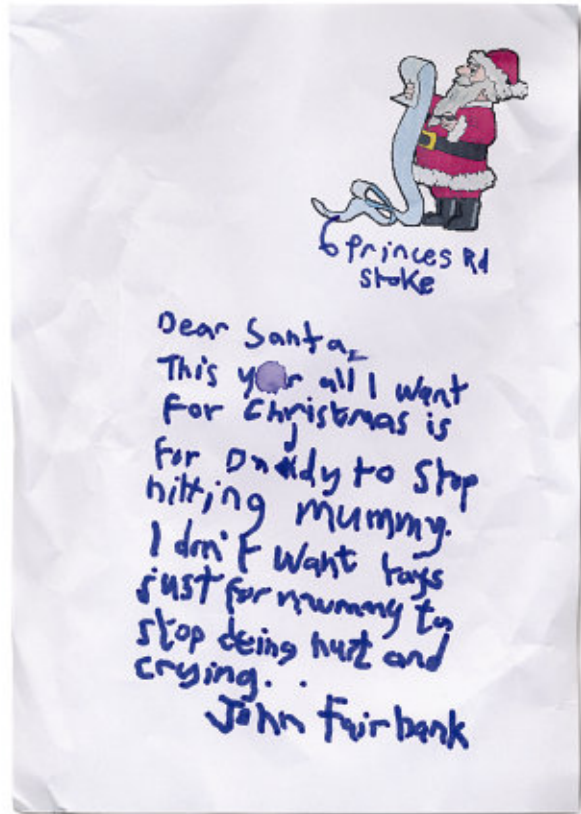 6 Princes Rd
Stoke
Dear Santa,
This year all I want
For Christmas is
for Daddy to stop
hitting mummy.
I don't want toys
just for mummy to
stop being hurt and
crying..
John Fairbank